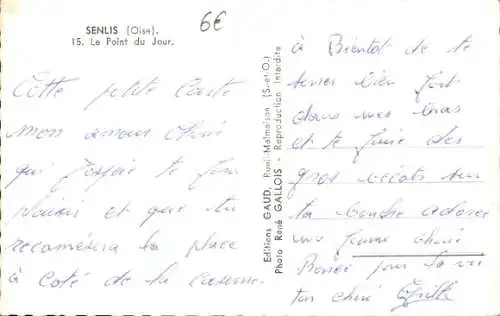 SENLIS (Oise).
15. Le Point du Jour.
6€
Cette petite Carte
mon amour chérie
qui j'espère te fera
plaisir et que tu
reconnaîtra la place
à coté de la caserne.
Editions GAUD, Rueil-Malmaison (S.-et-O.)
Photo René GALLOIS - Reproduction Interdite
à Bientot de te
serrer bien fort
dans mes bras
et te faire des
gros bécots sur
ta bouche adorée
ma femme chérie
pour la vie
ton chéri